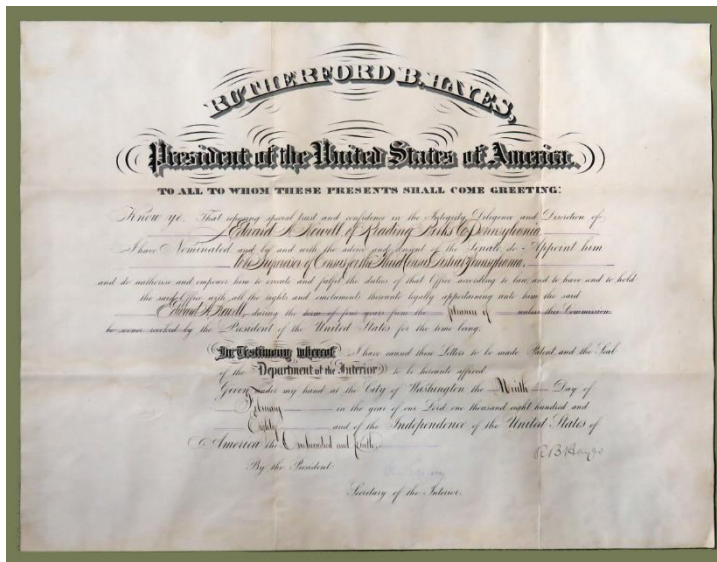 RUTHERFORD B. HAYES,
President of the United States of America,
TO ALL TO WHOM THESE PRESENTS SHALL COME GREETING:
Know ye, That reposing special trust and confidence in the Integrity Diligence and Discretion of
Edward A. Howell of Reading Berks Co Pennsylvania
I have Nominated and by and with the advice and consent of the Senate, do Appoint him
to be Supervisor of Census for the Third Census District Pennsylvania,
and do authorize and empower him to execute and fulfil the duties of that Office according to law, and to have and to hold
the said Office with all the rights and emoluments thereunto legally appertaining unto him the said
Edward A. Howell, during the term of four years from the pleasure of unless this Commission
be sooner revoked by the President of the United States for the time being.
In Testimony whereof I have caused these Letters to be made Patent and the Seal
of the Department of the Interior to be hereunto affixed
Given under my hand at the City of Washington the Ninth Day of
February in the year of our Lord one thousand eight hundred and
Eighty and of the Independence of the United States of
America the One hundred and fourth.
By the President: R B Hayes
Secretary of the Interior.